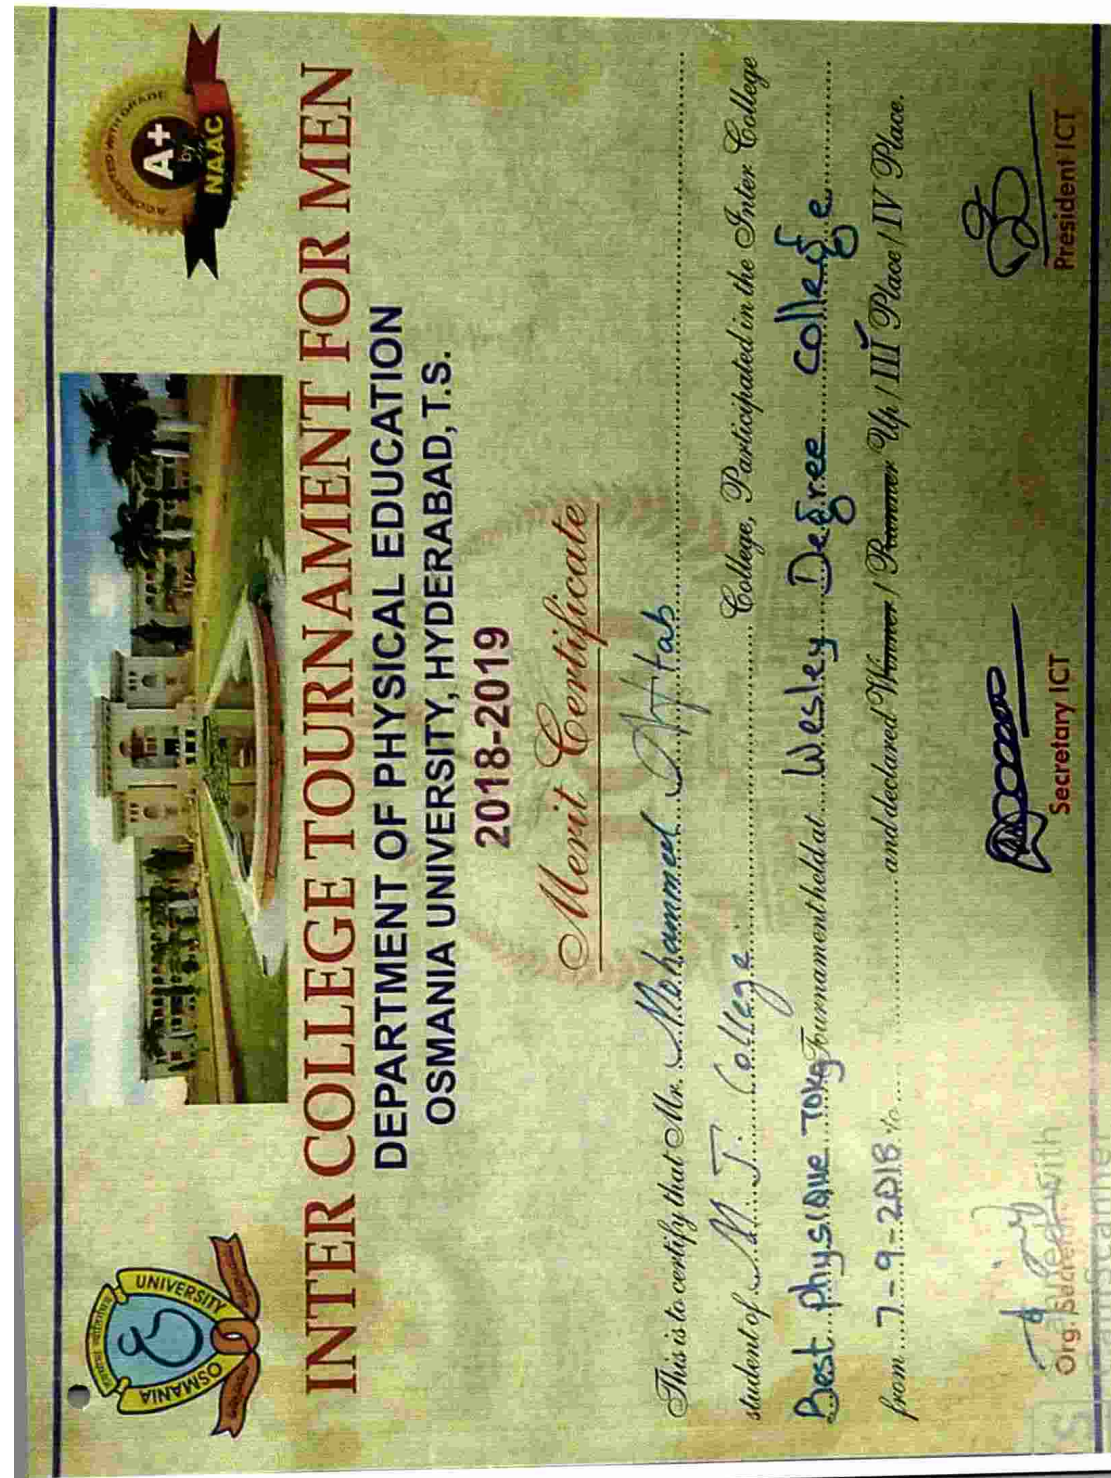 UNIVERSITY
OSMANIA
ACCREDITED WITH GRADE
A+
by
NAAC
INTER COLLEGE TOURNAMENT FOR MEN
DEPARTMENT OF PHYSICAL EDUCATION
OSMANIA UNIVERSITY, HYDERABAD, T.S.
2018-2019
Merit Certificate
This is to certify that Mr. Mohammed Aftab
student of M.J. College College, Participated in the Inter College
Best Physique 70kg Tournament held at Wesley Degree College
from 7-9-2018 to and declared Winner / Runner Up / III Place / IV Place.
Org. Secretary
Secretary ICT
President ICT
Scanned with
CamScanner